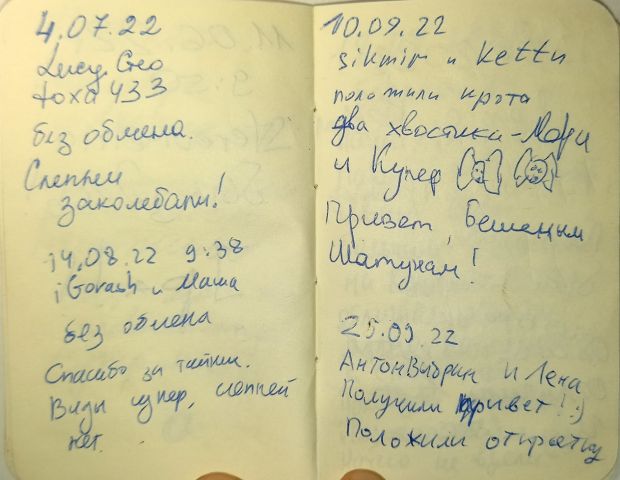 4.07.22
Lucy Geo
toxa433
без обмена.
Слепни
заколебали!
14.08.22 9:38
iGorash и Маша
без обмена
Спасибо за тайник.
Виды супер, слепней
нет.
10.09.22
sikmir и kettu
положили крота
два хвостика - Мари
и Купер
Привет, бешеным
Шатунам!
25.09.22
Антон Выбрин и Лена
Получили привет! :)
Положили открытку